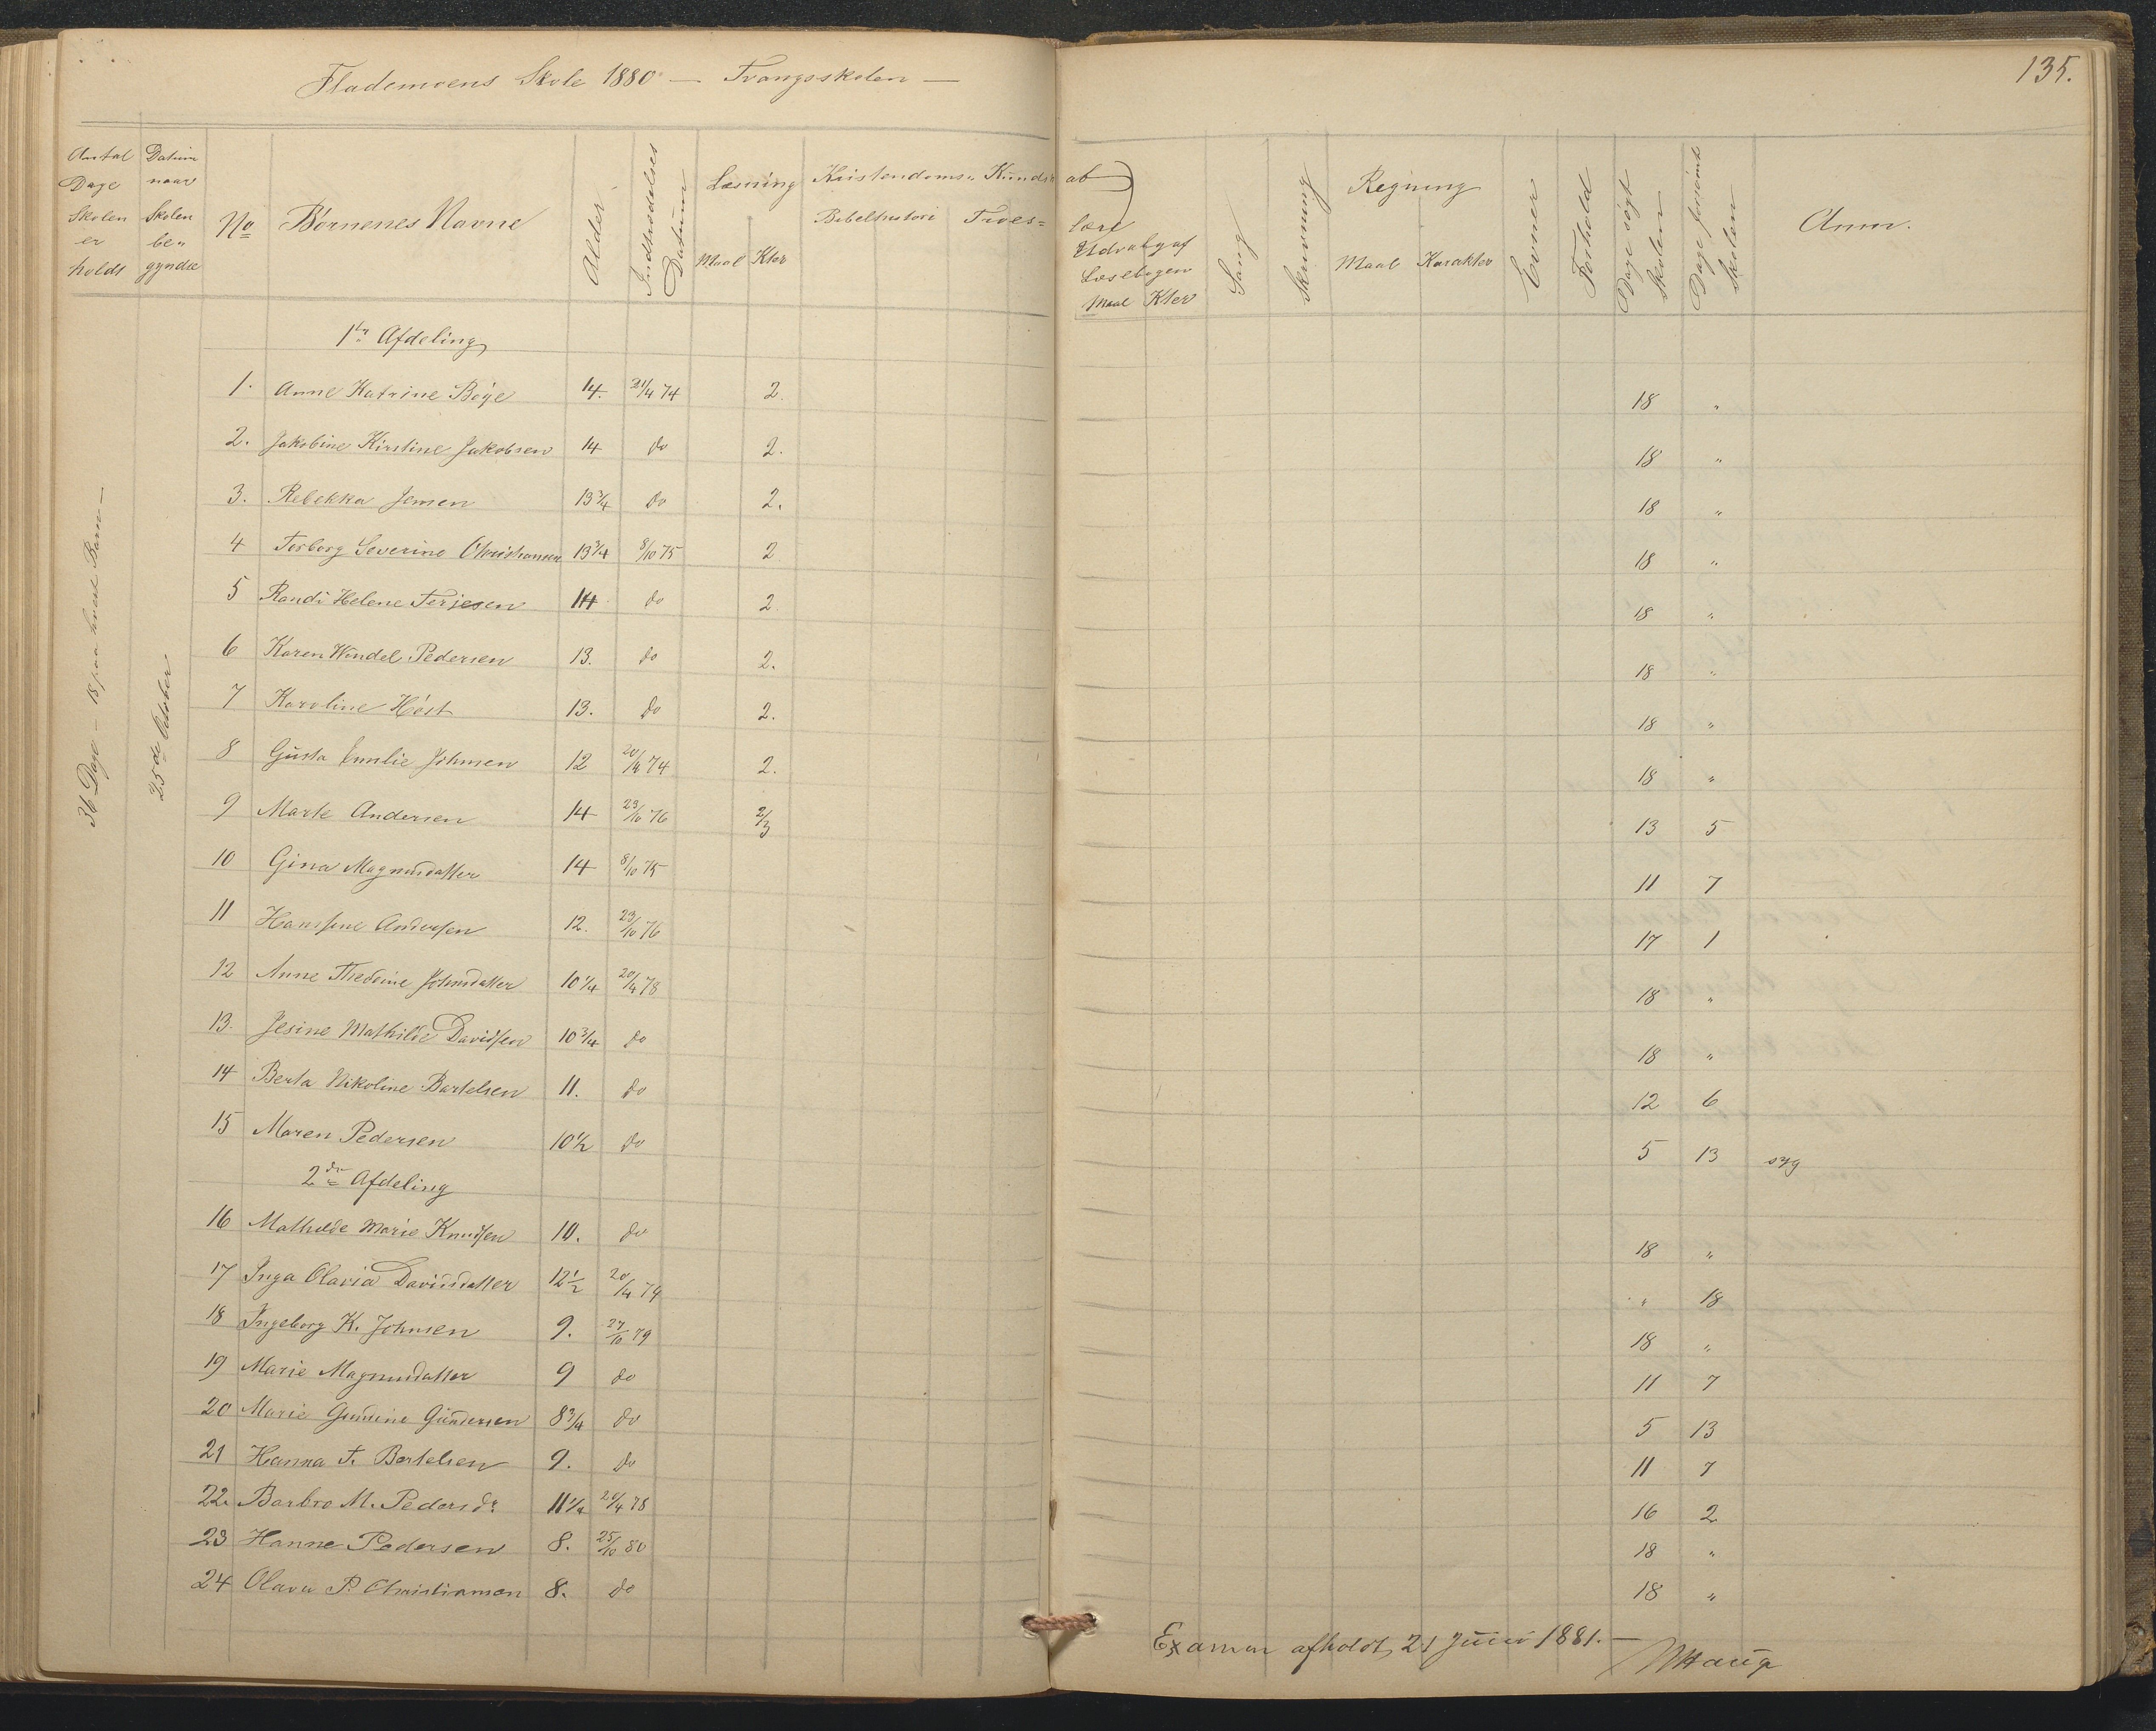 Flademoens Skole 1880 — Tvangsskolen —
135.
Antal Dage Skolen er holdt
Datum naar Skolen be- gyndte
No
Børnenes Navne
Alder
Indtrædelses Datum
Læsning
Maal Kter
Kristendoms- Kundskab
Bibelhistorie
Troes- lære
Udvalg af Læsebogen
Maal Kter
Sang
Skrivning
Regning
Maal Karakter
Evner
Forhold
Dage søgt Skolen
Dage forsømt Skolen
Anm.
36 Dage – 18 paa hvert Barn –
25de Oktober
1ste Afdeling
1. Anne Katrine Bøye 14. 21/4 74 2. 18 "
2. Jakobine Kirstine Jakobsen 14 do 2. 18 "
3. Rebekka Jensen 13 3/4 do 2. 18 "
4 Torborg Severine Christiansen 13 3/4 8/10 75 2 18 "
5 Randi Helene Terjesen 14 do 2. 18 "
6 Karen Wendel Pedersen 13. do 2. 18 "
7 Karoline Høst 13. do 2. 18 "
8 Gusta Emilie Johnsen 12 20/4 74 2. 18 "
9 Marte Andersen 14 23/10 76 2/3 13 5
10 Gina Magnusdatter 14 8/10 75 11 7
11 Hansine Andersen 12. 23/10 76 17 1
12 Anne Thedoine Johnsdatter 10 1/4 20/4 78 18 "
13. Jesine Mathilde Davidsen 10 3/4 do 18 "
14 Berta Nikoline Bartelsen 11. do 12 6
15 Maren Pedersen 10 1/2 do 5 13 syg
2den Afdeling
16 Mathilde Marie Knudsen 10. do 18 "
17 Inga Olavia Davidsdatter 12 1/2 20/4 79 " 18
18 Ingeborg K. Johnsen 9. 27/10 79 18 "
19 Marie Magnusdatter 9 do 11 7
20 Marie Gundersen 8 3/4 do 5 13
21 Hanna T. Bertelsen 9. do 11 7
22. Barbro M. Pedersdr 11 1/4 20/4 78 16 2
23 Hanne Pedersen 8. 25/10 80 18 "
24 Olava P. Christiansen 8. do 18 "
Examen afholdt, 21 Juni 1881. —
Haug